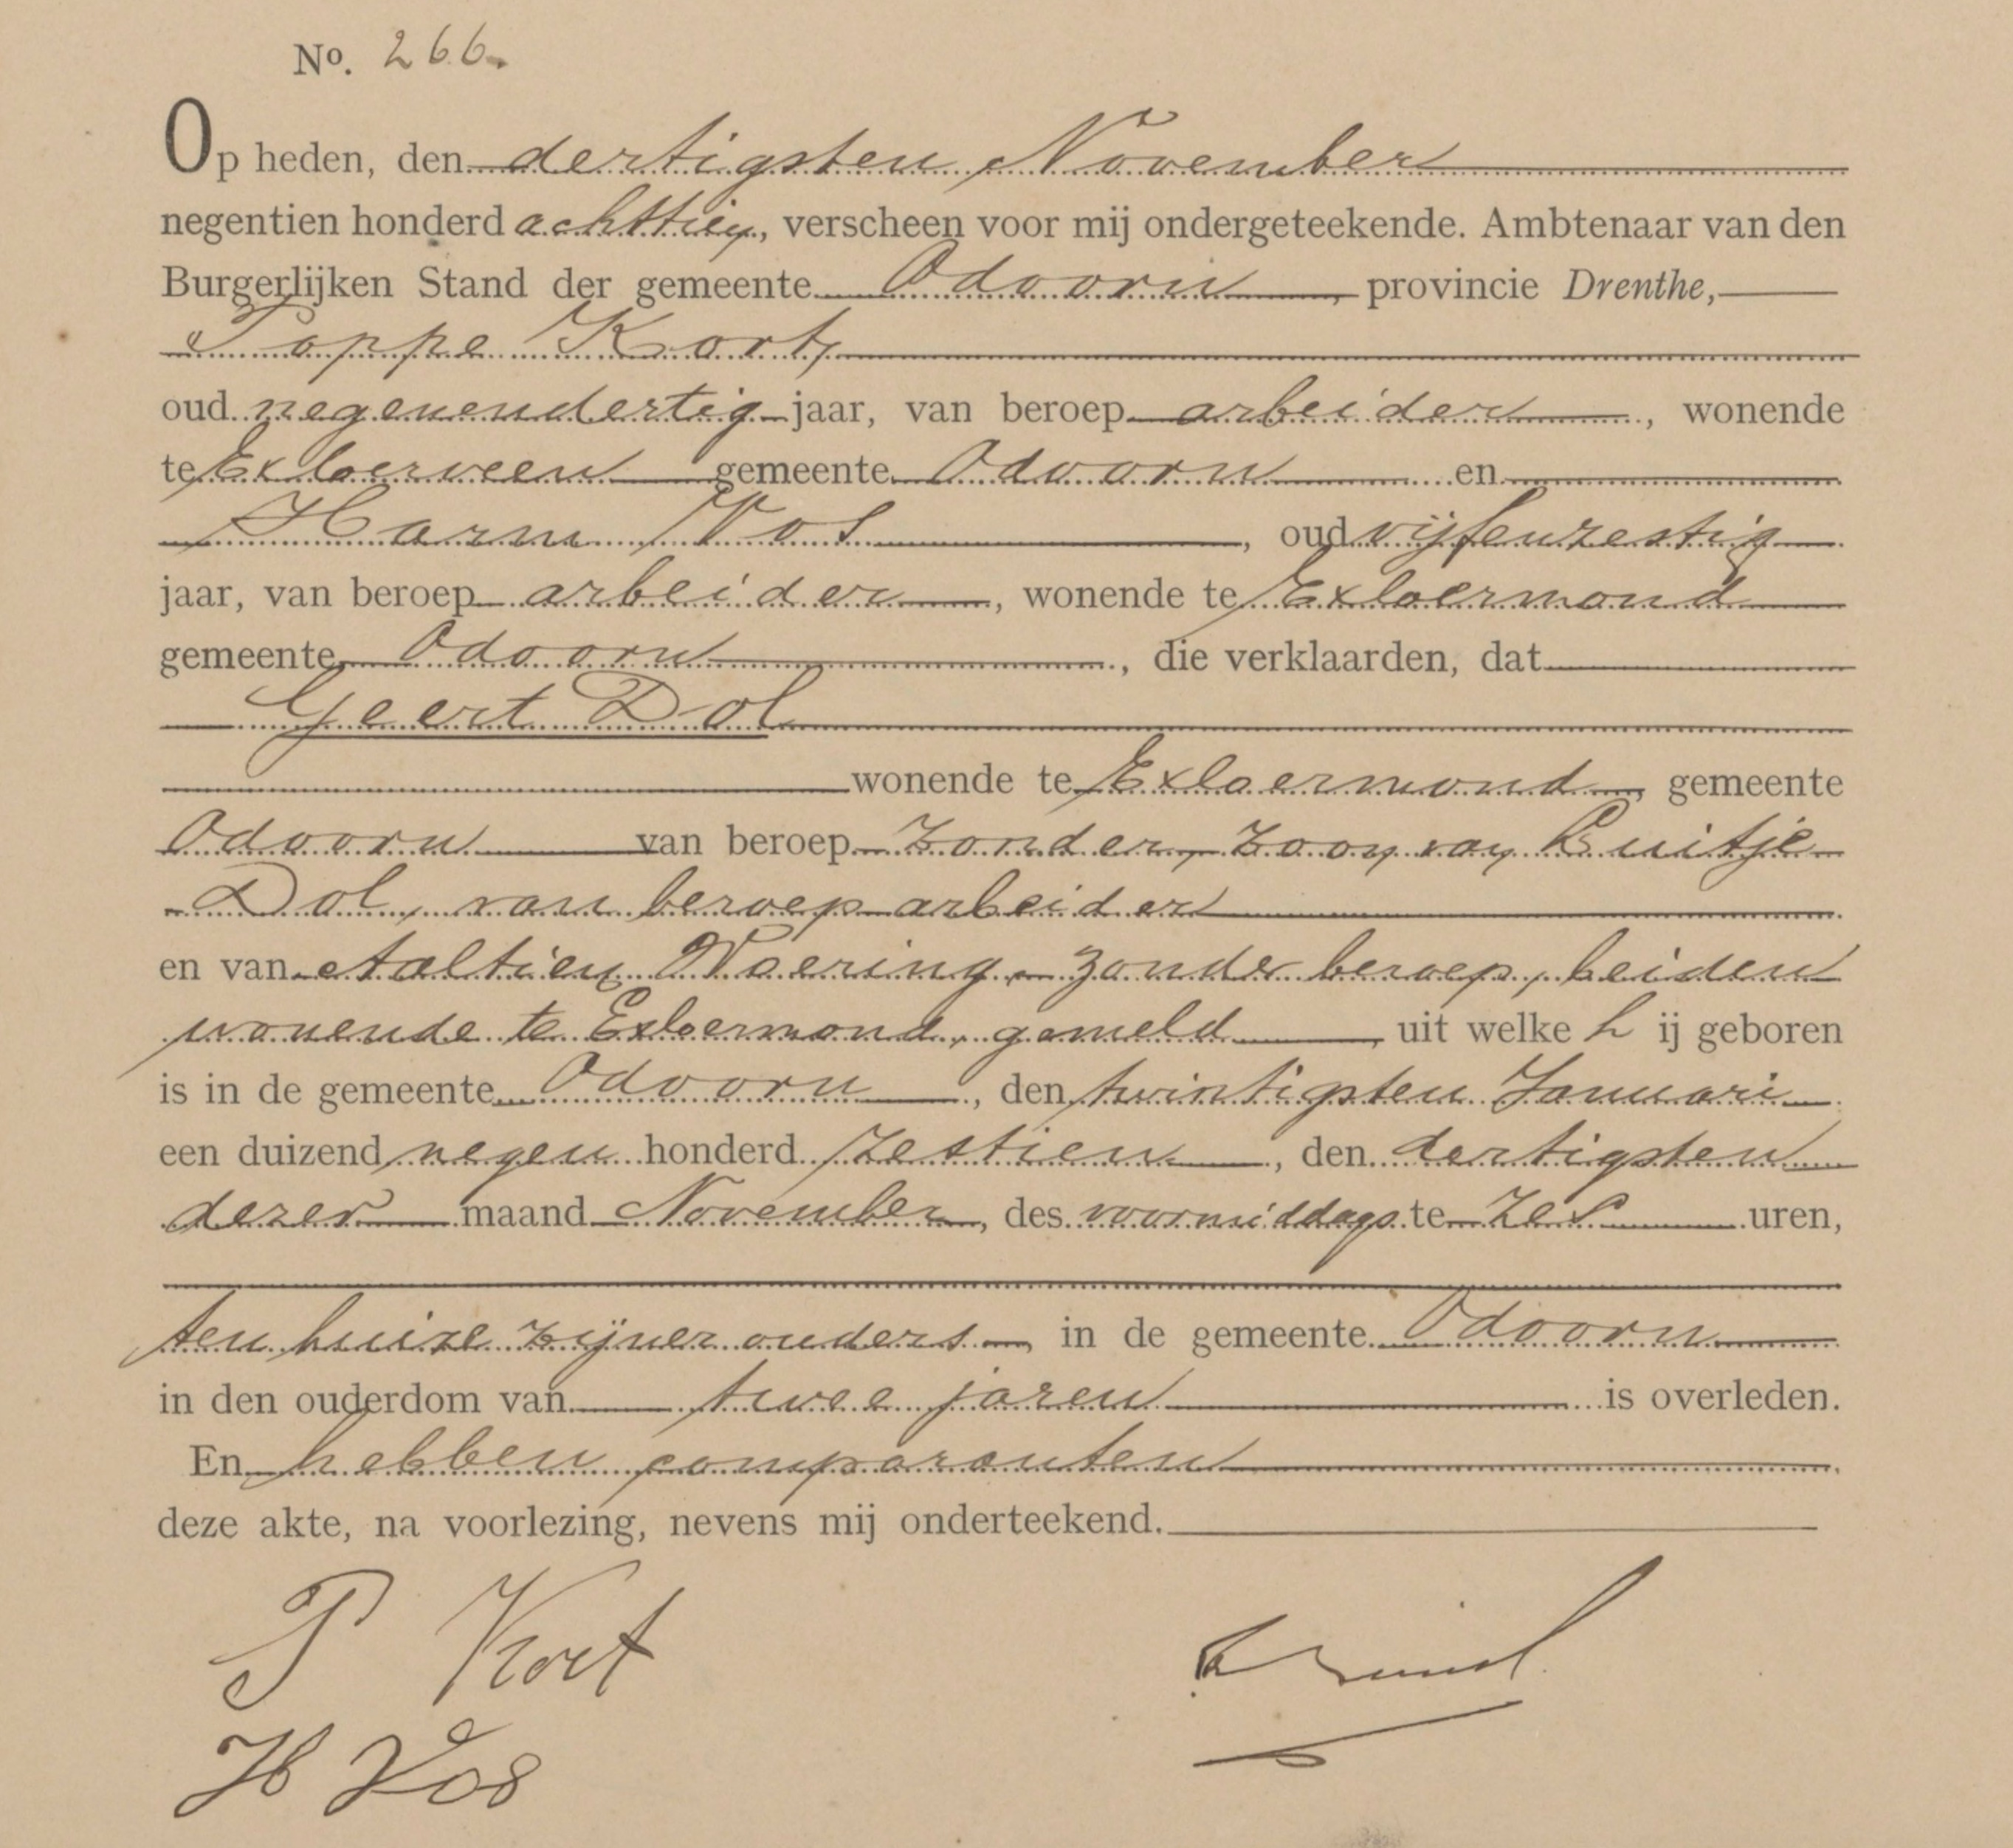 No. 266.
Op heden, den dertigsten November
negentien honderd achttien, verscheen voor mij ondergeteekende. Ambtenaar van den
Burgerlijken Stand der gemeente Odoorn, provincie Drenthe,
Poppe Kort,
oud negenendertig jaar, van beroep arbeider, wonende
te Exloerveen gemeente Odoorn en
Harm Vos, oud vijfenzestig
jaar, van beroep arbeider, wonende te Exloermond
gemeente Odoorn, die verklaarden, dat
Geert Dol
wonende te Exloermond, gemeente
Odoorn van beroep zonder, zoon van Luitje
Dol, van beroep arbeider
en van Aaltien Woering, zonder beroep, beiden
wonende te Exloermond, gemeld, uit welke h ij geboren
is in de gemeente Odoorn, den twintigsten Januari
een duizend negen honderd zestien, den dertigsten
dezer maand November, des voormiddags te zes uren,
ten huize zijner ouders, in de gemeente Odoorn
in den ouderdom van twee jaren is overleden.
En hebben comparanten
deze akte, na voorlezing, nevens mij onderteekend.
P Kort
H Vos